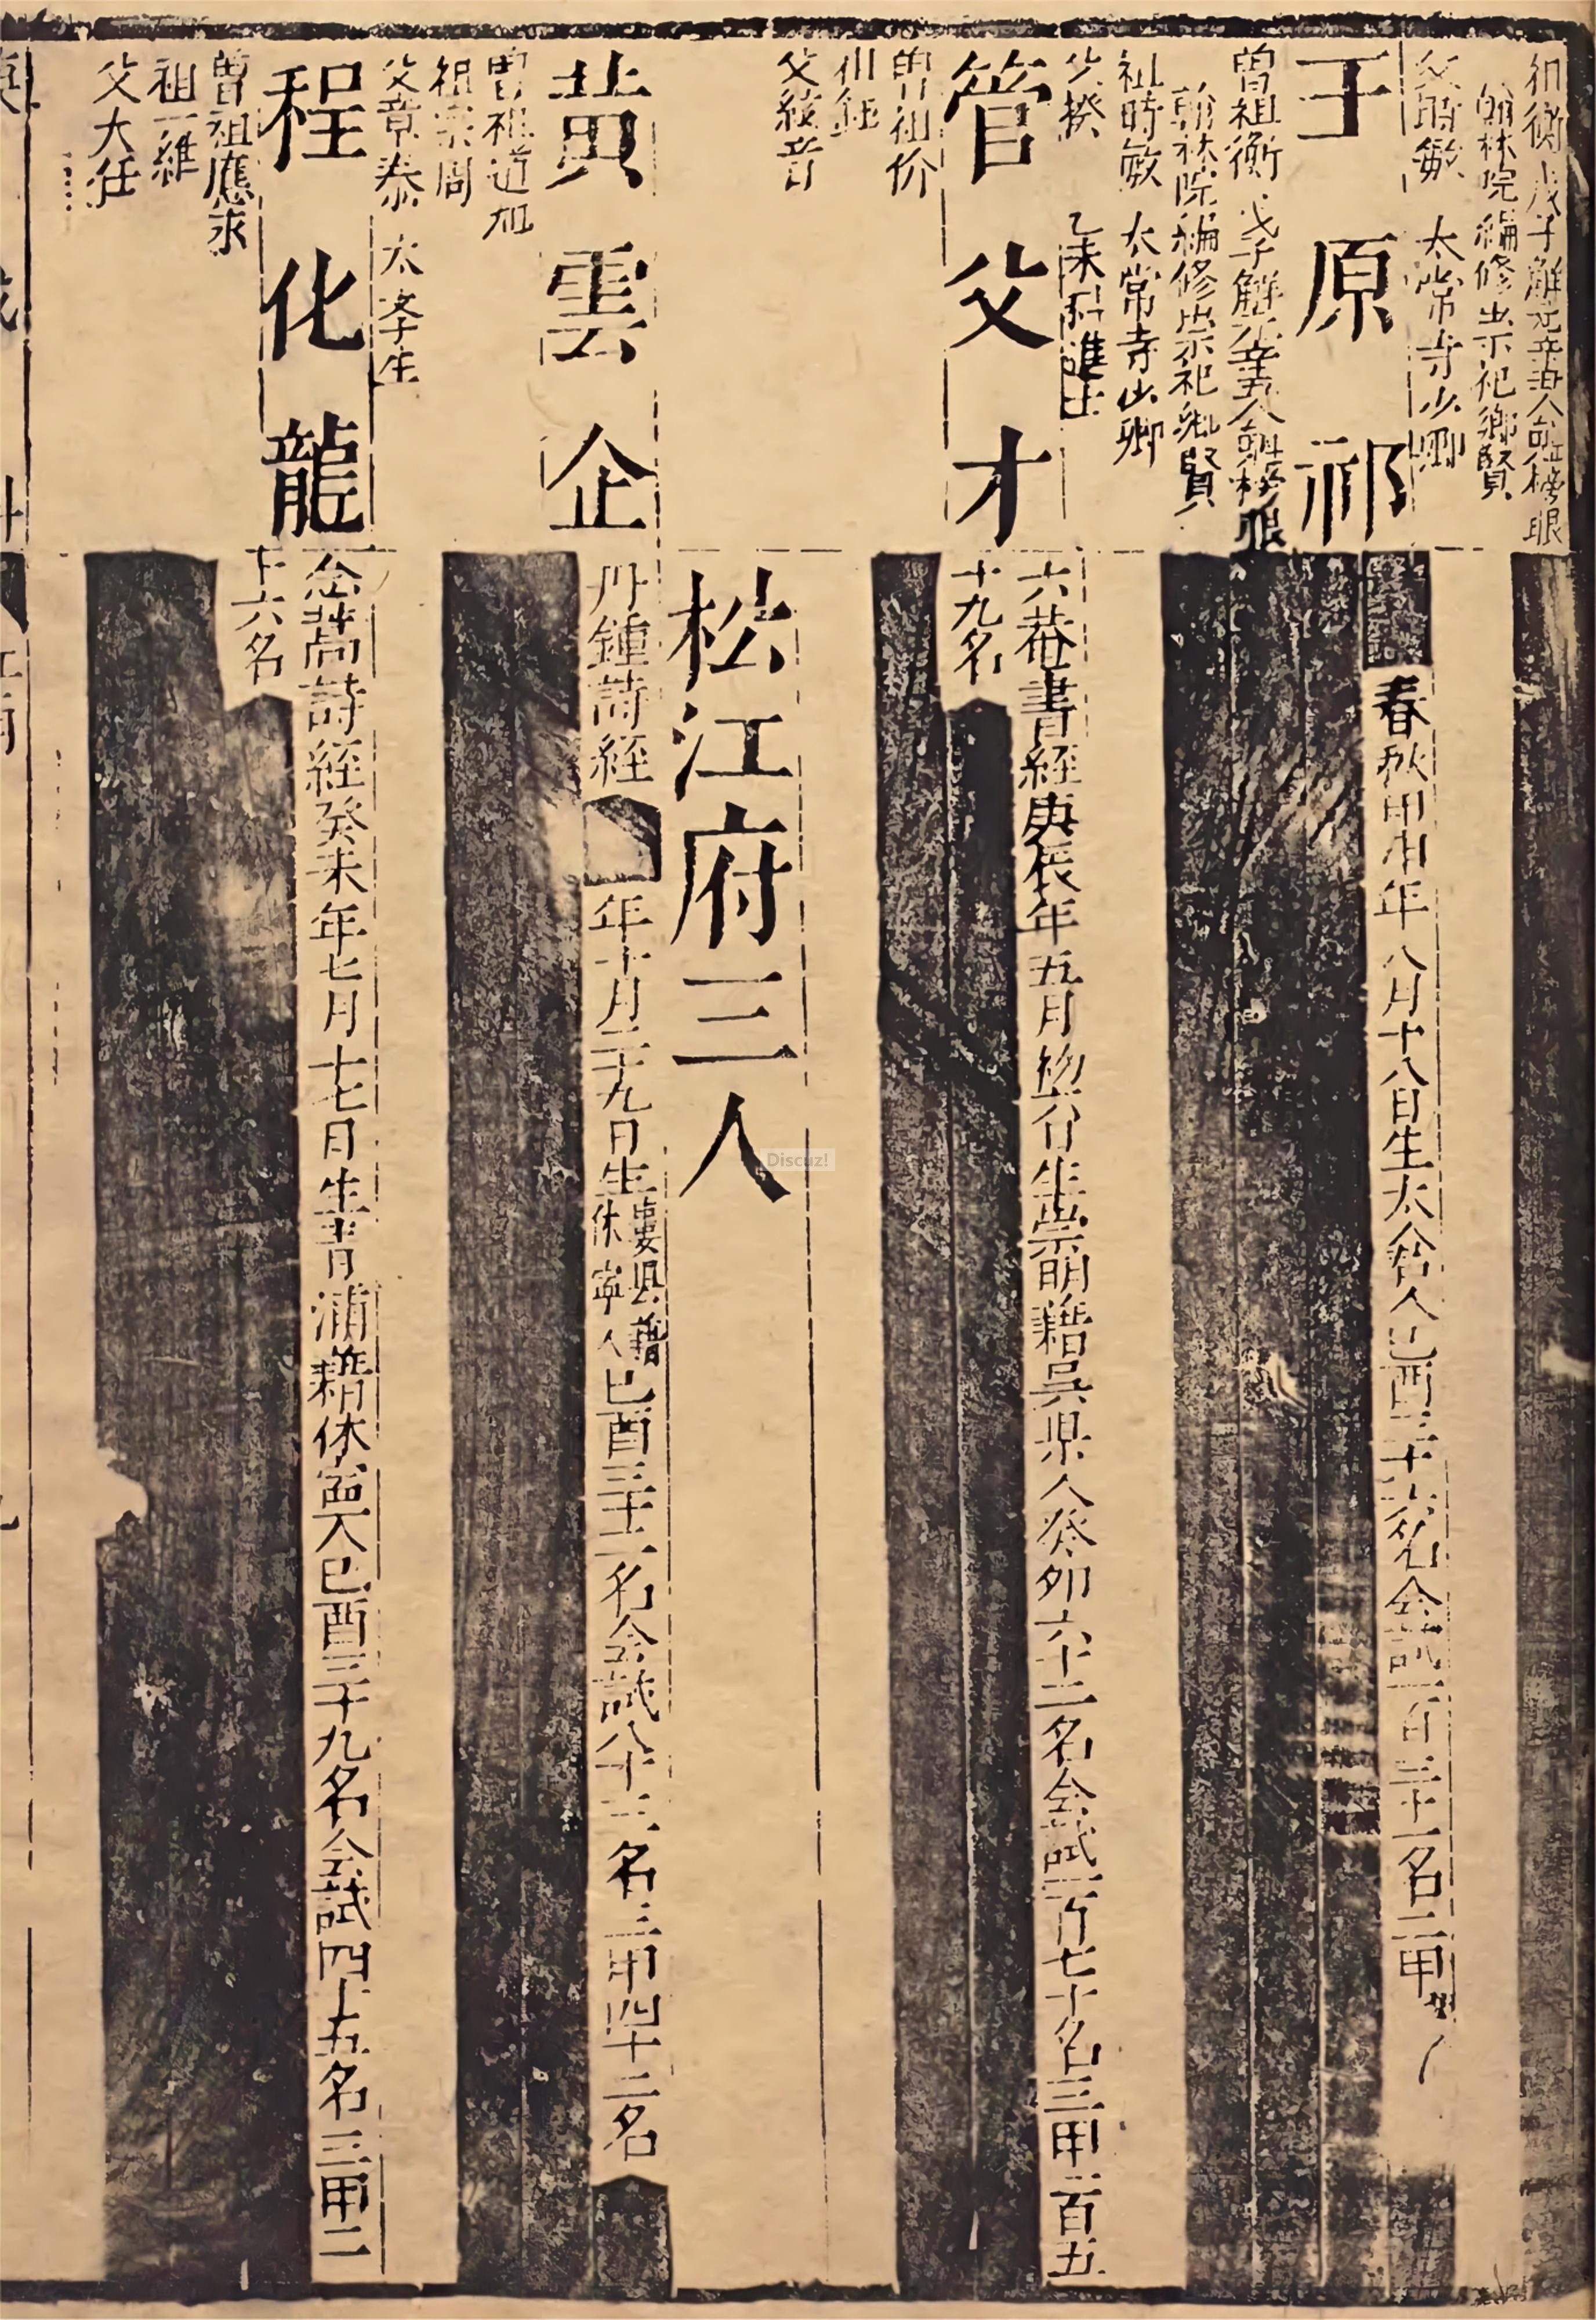 祖衡 戊子解元辛丑會魁榜眼
翰林院編修崇祀鄉賢
父時敏 太常寺少卿
王原祁
春秋甲申年八月十八日生太倉人己酉三十六名會試一百三十一名二甲
曾祖衡 戊子解元辛丑會魁榜眼
翰林院編修崇祀鄉賢
祖時敏 太常寺少卿
父揆 乙未科進士
管父才
六菴書經庚辰年五月初六日生崇明籍吳縣人癸卯六十二名會試一百七十名三甲一百五
十九名
曾祖价
祖鈺
父絃音
松江府三人
黃雲企
丹鍾詩經 年十月二十九日生婁縣籍
休寧人己酉三十一名會試八十三名三甲四十二名
曾祖道
祖宗周
父章泰 太學生
程化龍
念蒿詩經癸未年七月十七日生青浦籍休寧人己酉三十九名會試四十五名三甲二
十六名
曾祖應求
祖一維
父大任
Discuz!